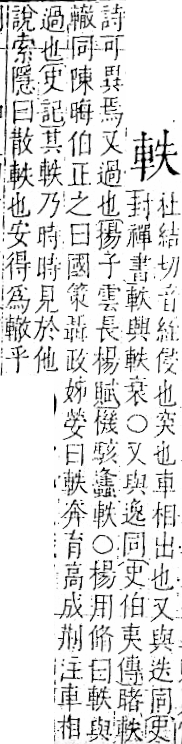 軼
杜結切音絰侵也突也車相出也又與迭同史
封禪書軼興軼衰○又與逸同史伯夷傳睹軼
詩可異焉又過也揚子雲長楊賦機駭蠭軼○楊用脩曰軼與
轍同陳晦伯正之曰國策聶政姊嫈曰軼奔育高成荊注車相
過也史記其軼乃時時見於他
說索隱曰散軼也安得為轍乎